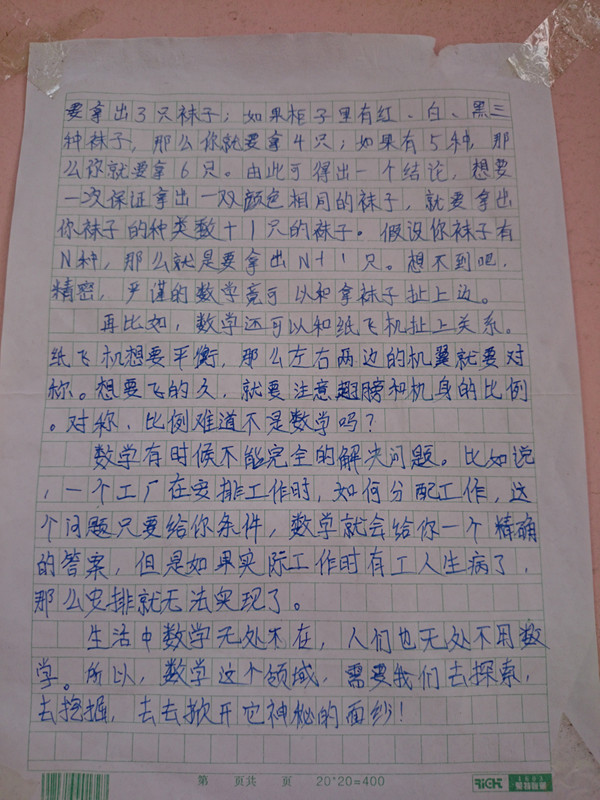 要拿出3只袜子；如果柜子里有红、白、黑三
种袜子，那么你就要拿4只；如果有5种，那
么你就要拿6只。由此可得出一个结论，想要
一次保证拿出一双颜色相同的袜子，就要拿出
你袜子的种类数+1只的袜子。假设你袜子有
N种，那么就是要拿出N+1只。想不到吧，
精密，严谨的数学竟可以和拿袜子扯上边。
再比如，数学还可以和纸飞机扯上关系。
纸飞机想要平衡，那么左右两边的机翼就要对
称。想要飞的久，就要注意翅膀和机身的比例
。对称、比例难道不是数学吗？
数学有时候不能完全的解决问题。比如说
，一个工厂在安排工作时，如何分配工作，这
个问题只要给你条件，数学就会给你一个精确
的答案，但是如果实际工作时有工人生病了，
那么安排就无法实现了。
生活中数学无处不在，人们也无处不用数
学。所以，数学这个领域，需要我们去探索，
去挖掘，去去掀开它神秘的面纱！
第 页共 页 20*20=400
RICH